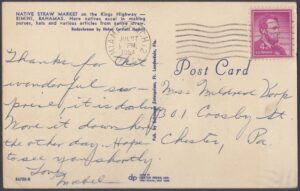 NATIVE STRAW MARKET on the Kings Highway —
BIMINI, BAHAMAS. Here natives excel in making
purses, hats and various articles from native straw.
Ektachrome by
JUL 27
PM
4¢
Post Card
Thanks for that
wonderful sur-
prise, it is darling
Wore it down here
the other day. Hope
to see you shortly
Love
Mabel
Miss Mildred Korp
301 Crosby St.
Chester, Pa.
dp